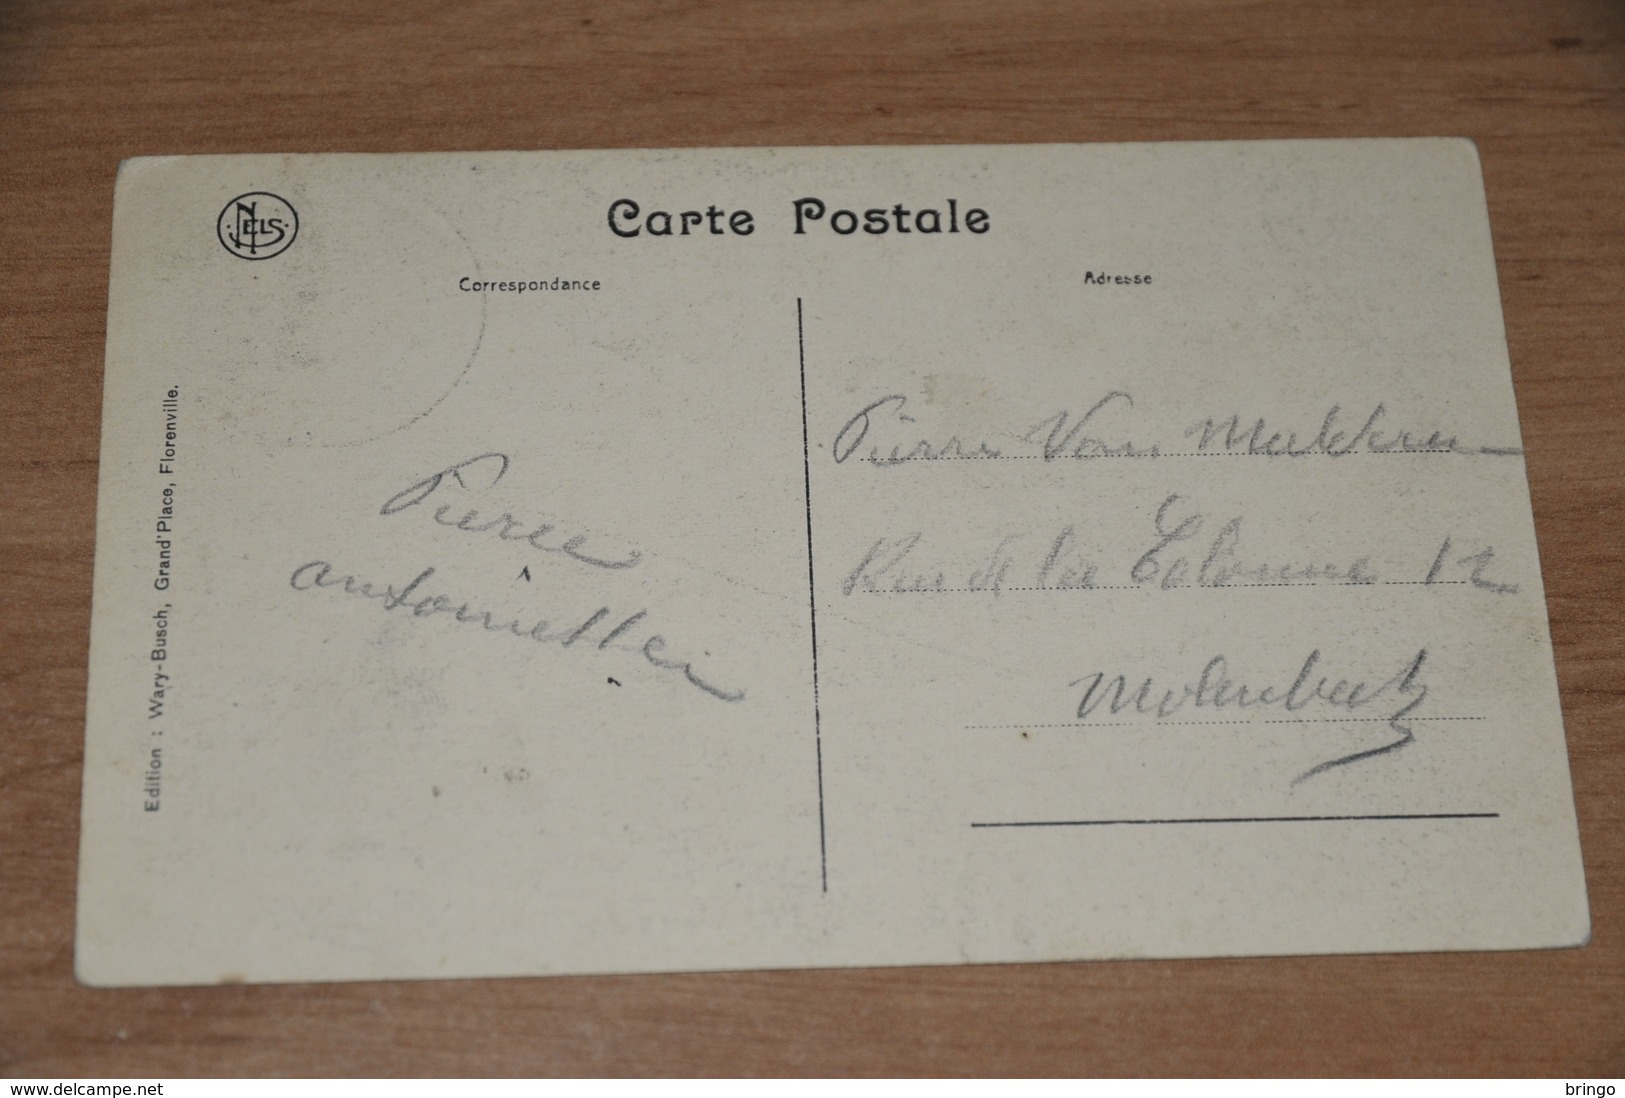 NELS
Carte Postale
Correspondance
Adresse
Edition : Wary-Busch, Grand'Place, Florenville.
Pierre
antoinette
Pierre Van
Rue de la Colonne 12
Molenbeek
www.delcampe.net
bringo